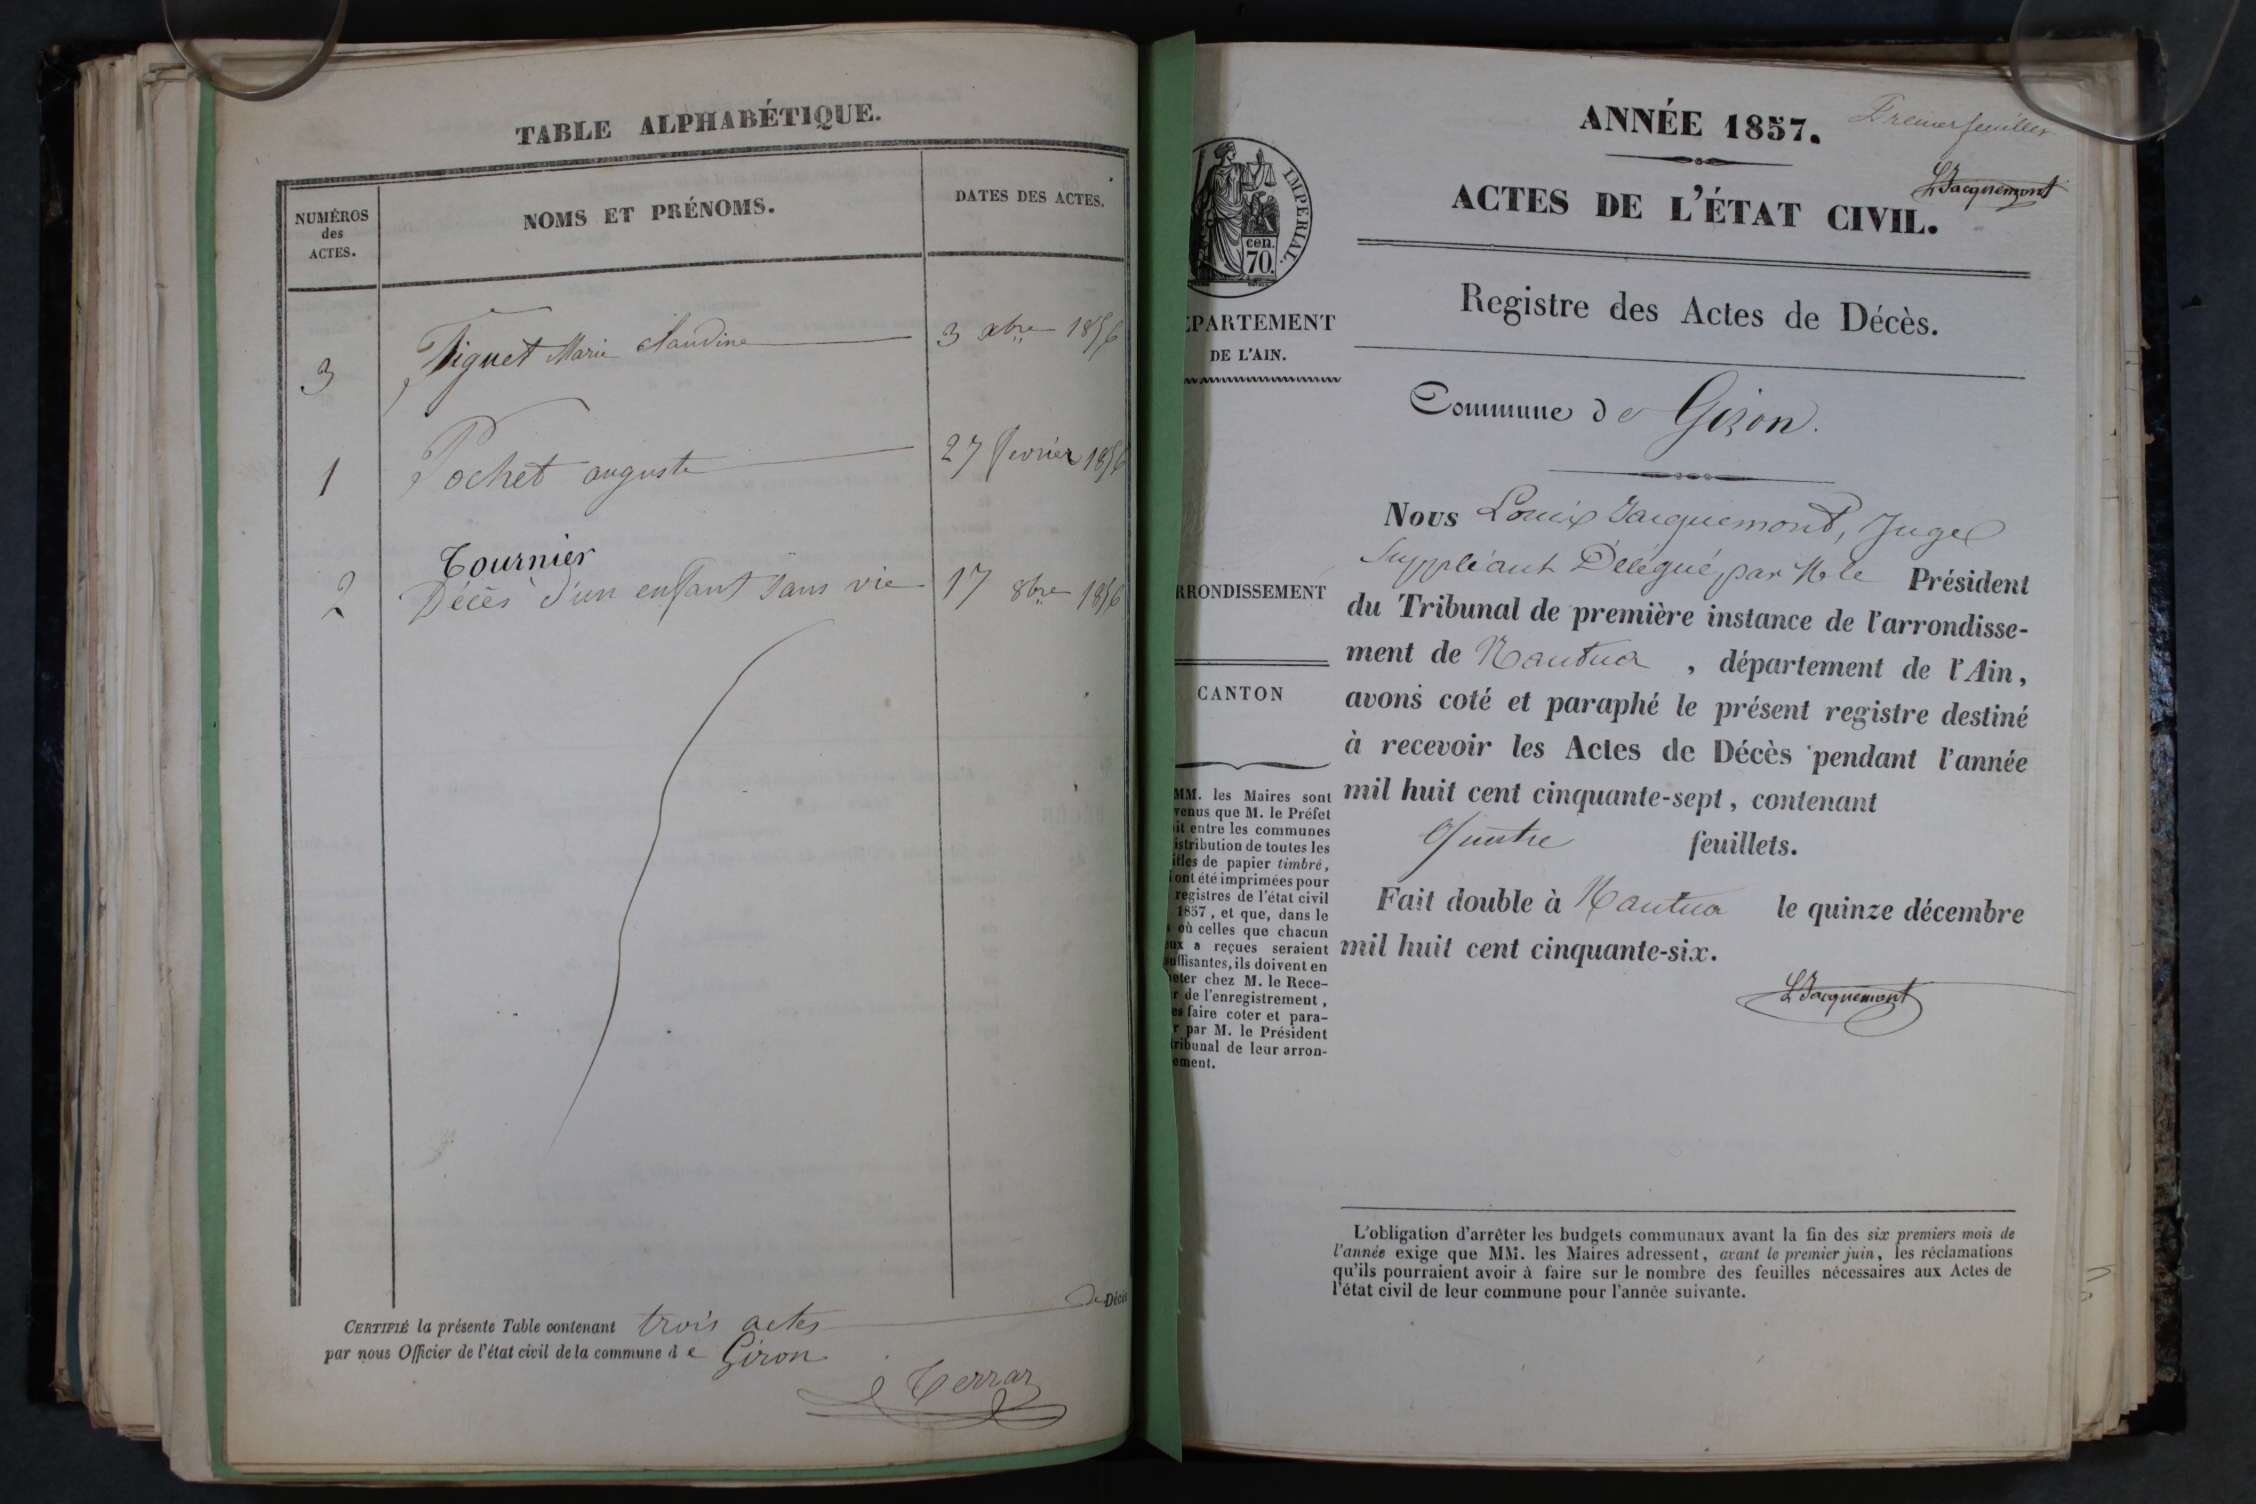 TABLE ALPHABÉTIQUE.
NUMÉROS
des
ACTES.
NOMS ET PRÉNOMS.
DATES DES ACTES.
3 Figuet Marie Claudine 3 xbre 1856
1 Pochet auguste 27 fevrier 1856
Tournier
2 Décès d'un enfant sans vie 17 8bre 1856
de Décès
CERTIFIÉ la présente Table contenant trois actes
par nous Officier de l'état civil de la commune d e Giron
Terraz
ANNÉE 1857.
Premier feuillet
LJacquemont
ACTES DE L'ÉTAT CIVIL.
IMPERIAL.
cen.
70.
Registre des Actes de Décès.
PARTEMENT
DE L'AIN.
Commune de Giron.
Nous Louis Jacquemont, Juge
Suppléant Délégué par Mr le Président
RRONDISSEMENT
du Tribunal de première instance de l'arrondisse-
ment de Nantua, département de l'Ain,
CANTON
avons coté et paraphé le présent registre destiné
à recevoir les Actes de Décès pendant l'année
mil huit cent cinquante-sept, contenant
Quatre feuillets.
Fait double à Nantua le quinze décembre
mil huit cent cinquante-six.
LJacquemont
MM. les Maires sont
venus que M. le Préfet
it entre les communes
istribution de toutes les
illes de papier timbré,
ont été imprimées pour
registres de l'état civil
1857, et que, dans le
où celles que chacun
eux a reçues seraient
uffisantes, ils doivent en
heter chez M. le Rece-
r de l'enregistrement,
es faire coter et para-
r par M. le Président
tribunal de leur arron-
ement.
L'obligation d'arrêter les budgets communaux avant la fin des six premiers mois de
l'année exige que MM. les Maires adressent, avant le premier juin, les réclamations
qu'ils pourraient avoir à faire sur le nombre des feuilles nécessaires aux Actes de
l'état civil de leur commune pour l'année suivante.